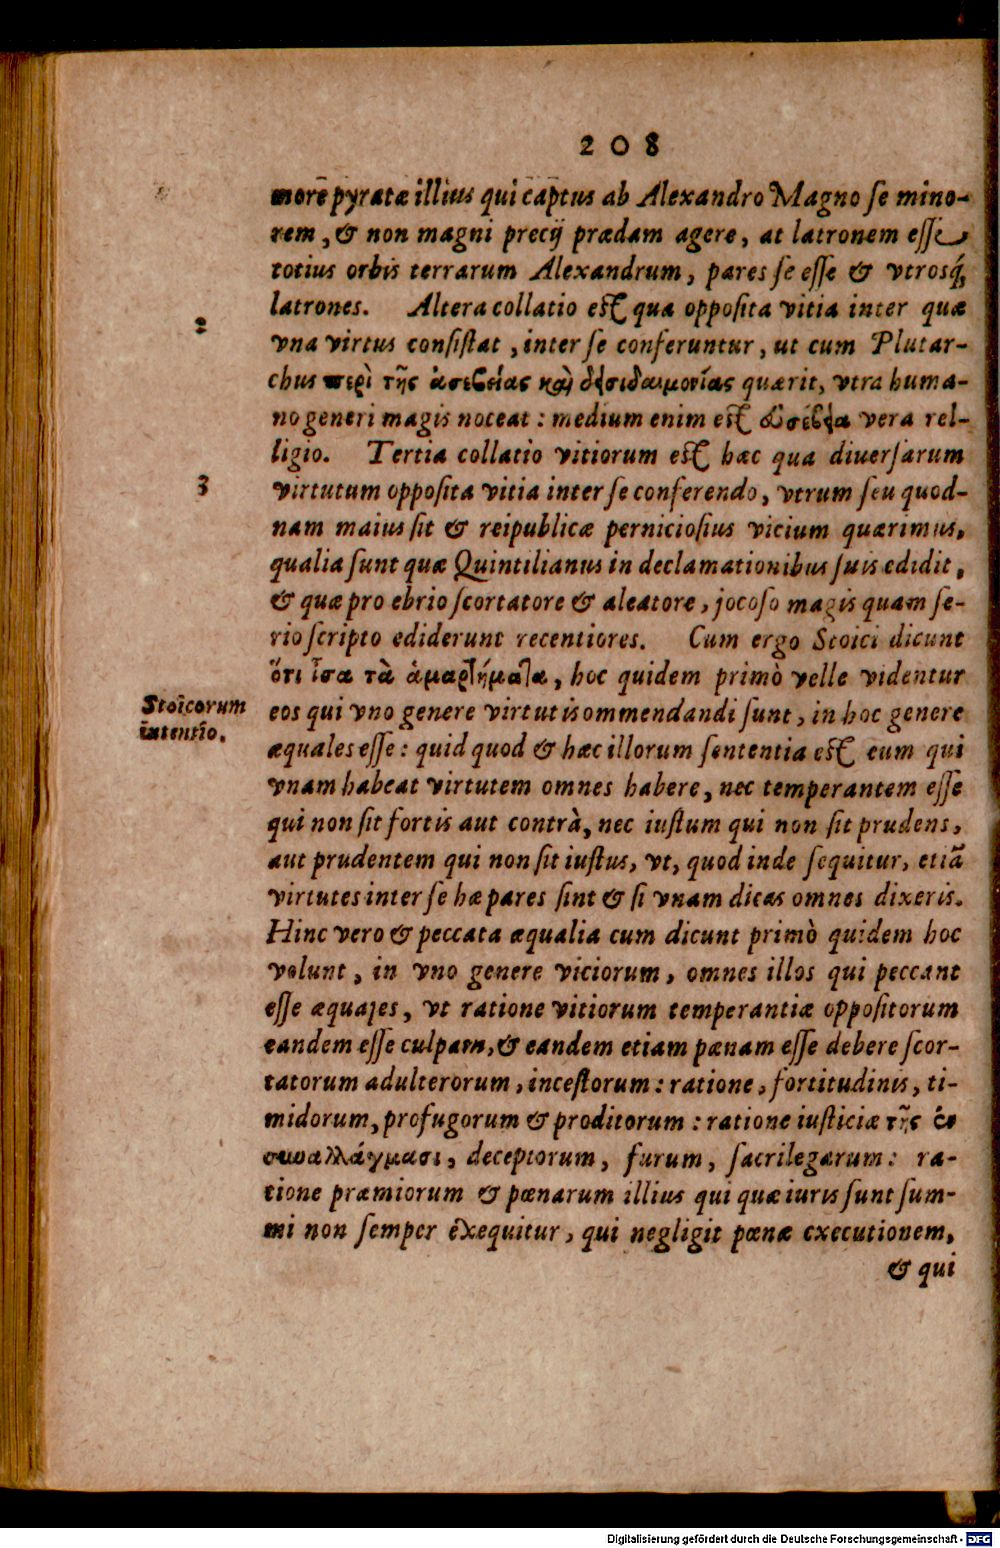 208
more pyratæ illius qui captus ab Alexandro Magno se mino-
rem, & non magni precij prædam agere, at latronem esse
totius orbis terrarum Alexandrum, pares se esse & vtrosq́;
latrones. Altera collatio est qua opposita vitia inter quæ
2
vna virtus consistat, inter se conferuntur, ut cum Plutar-
chus περὶ τῆς ἀσεβείας καὶ δεισιδαιμονίας quærit, vtra huma-
no generi magis noceat: medium enim est εὐσέβεια vera rel-
ligio. Tertia collatio vitiorum est hæc qua diuersarum
3
virtutum opposita vitia inter se conferendo, vtrum seu quod-
nam maius sit & reipublicæ perniciosius vicium quærimus,
qualia sunt quæ Quintilianus in declamationibus suis edidit,
& quæ pro ebrio scortatore & aleatore, jocoso magis quam se-
rio scripto ediderunt recentiores. Cum ergo Stoici dicunt
ὅτι ἴσα τὰ ἁμαρτήματα, hoc quidem primò velle videntur
Stoicorum
intentio.
eos qui vno genere virtutis ommendandi sunt, in hoc genere
æquales esse: quid quod & hæc illorum sententia est eum qui
vnam habeat virtutem omnes habere, nec temperantem esse
qui non sit fortis aut contrà, nec iustum qui non sit prudens,
aut prudentem qui non sit iustus, vt, quod inde sequitur, etiã
virtutes inter se hæ pares sint & si vnam dicas omnes dixeris.
Hinc vero & peccata æqualia cum dicunt primò quidem hoc
volunt, in vno genere viciorum, omnes illos qui peccant
esse æquales, vt ratione vitiorum temperantiæ oppositorum
eandem esse culpam, & eandem etiam pænam esse debere scor-
tatorum adulterorum, incestorum: ratione, fortitudinis, ti-
midorum, profugorum & proditorum: ratione iusticiæ τῆς ἐν
συναλλάγμασι, deceptorum, furum, sacrilegarum: ra-
tione præmiorum & pœnarum illius qui quæ iuris sunt sum-
mi non semper exequitur, qui negligit pœnæ executionem,
& qui
Digitalisierung gefördert durch die Deutsche Forschungsgemeinschaft - DFG